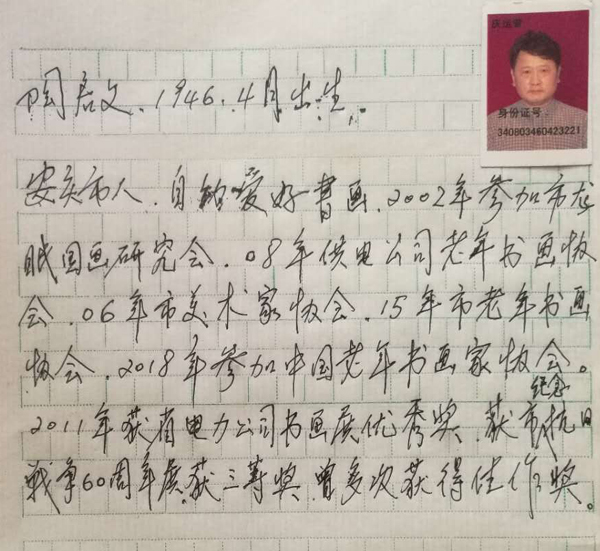 陶启文、1946.4月出生.
身份证号:
340803460423221
安庆市人.自幼爱好書画.2002年参加市龙
眠国画研究会.08年供电公司老年书画协
会.06年市美术家协会.15年市老年书画
协会.2018年参加中国老年书画家协会。
纪念
2011年获省电力公司书画展优秀奖.获市抗日
战争60周年展.获三等奖.曾多次获得佳作奖。